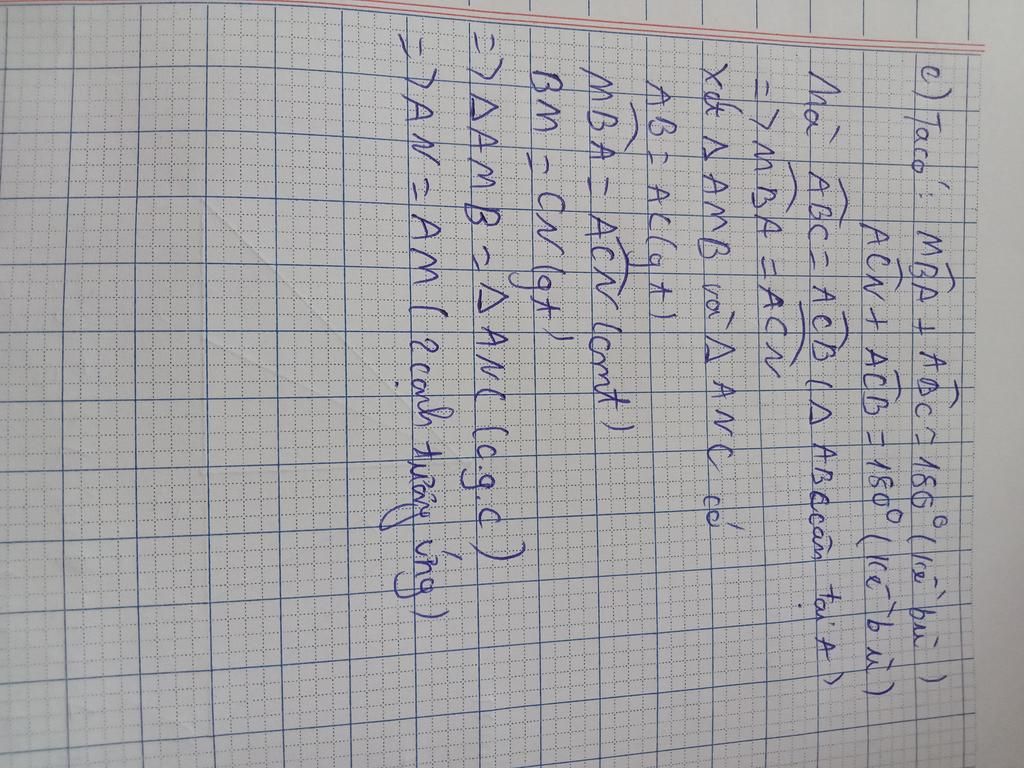 c) Ta có: MBA + ABC = 180° (kề bù)
ACN + ACB = 180° (kề bù)
Mà ABC = ACB (Δ ABC cân tại A)
=> MBA = ACN
Xét Δ AMB và Δ ANC có
AB = AC (gt)
MBA = ACN (cmt)
BM = CN (gt)
=> Δ AMB = Δ ANC (c.g.c)
=> AN = AM (2 cạnh tương ứng)